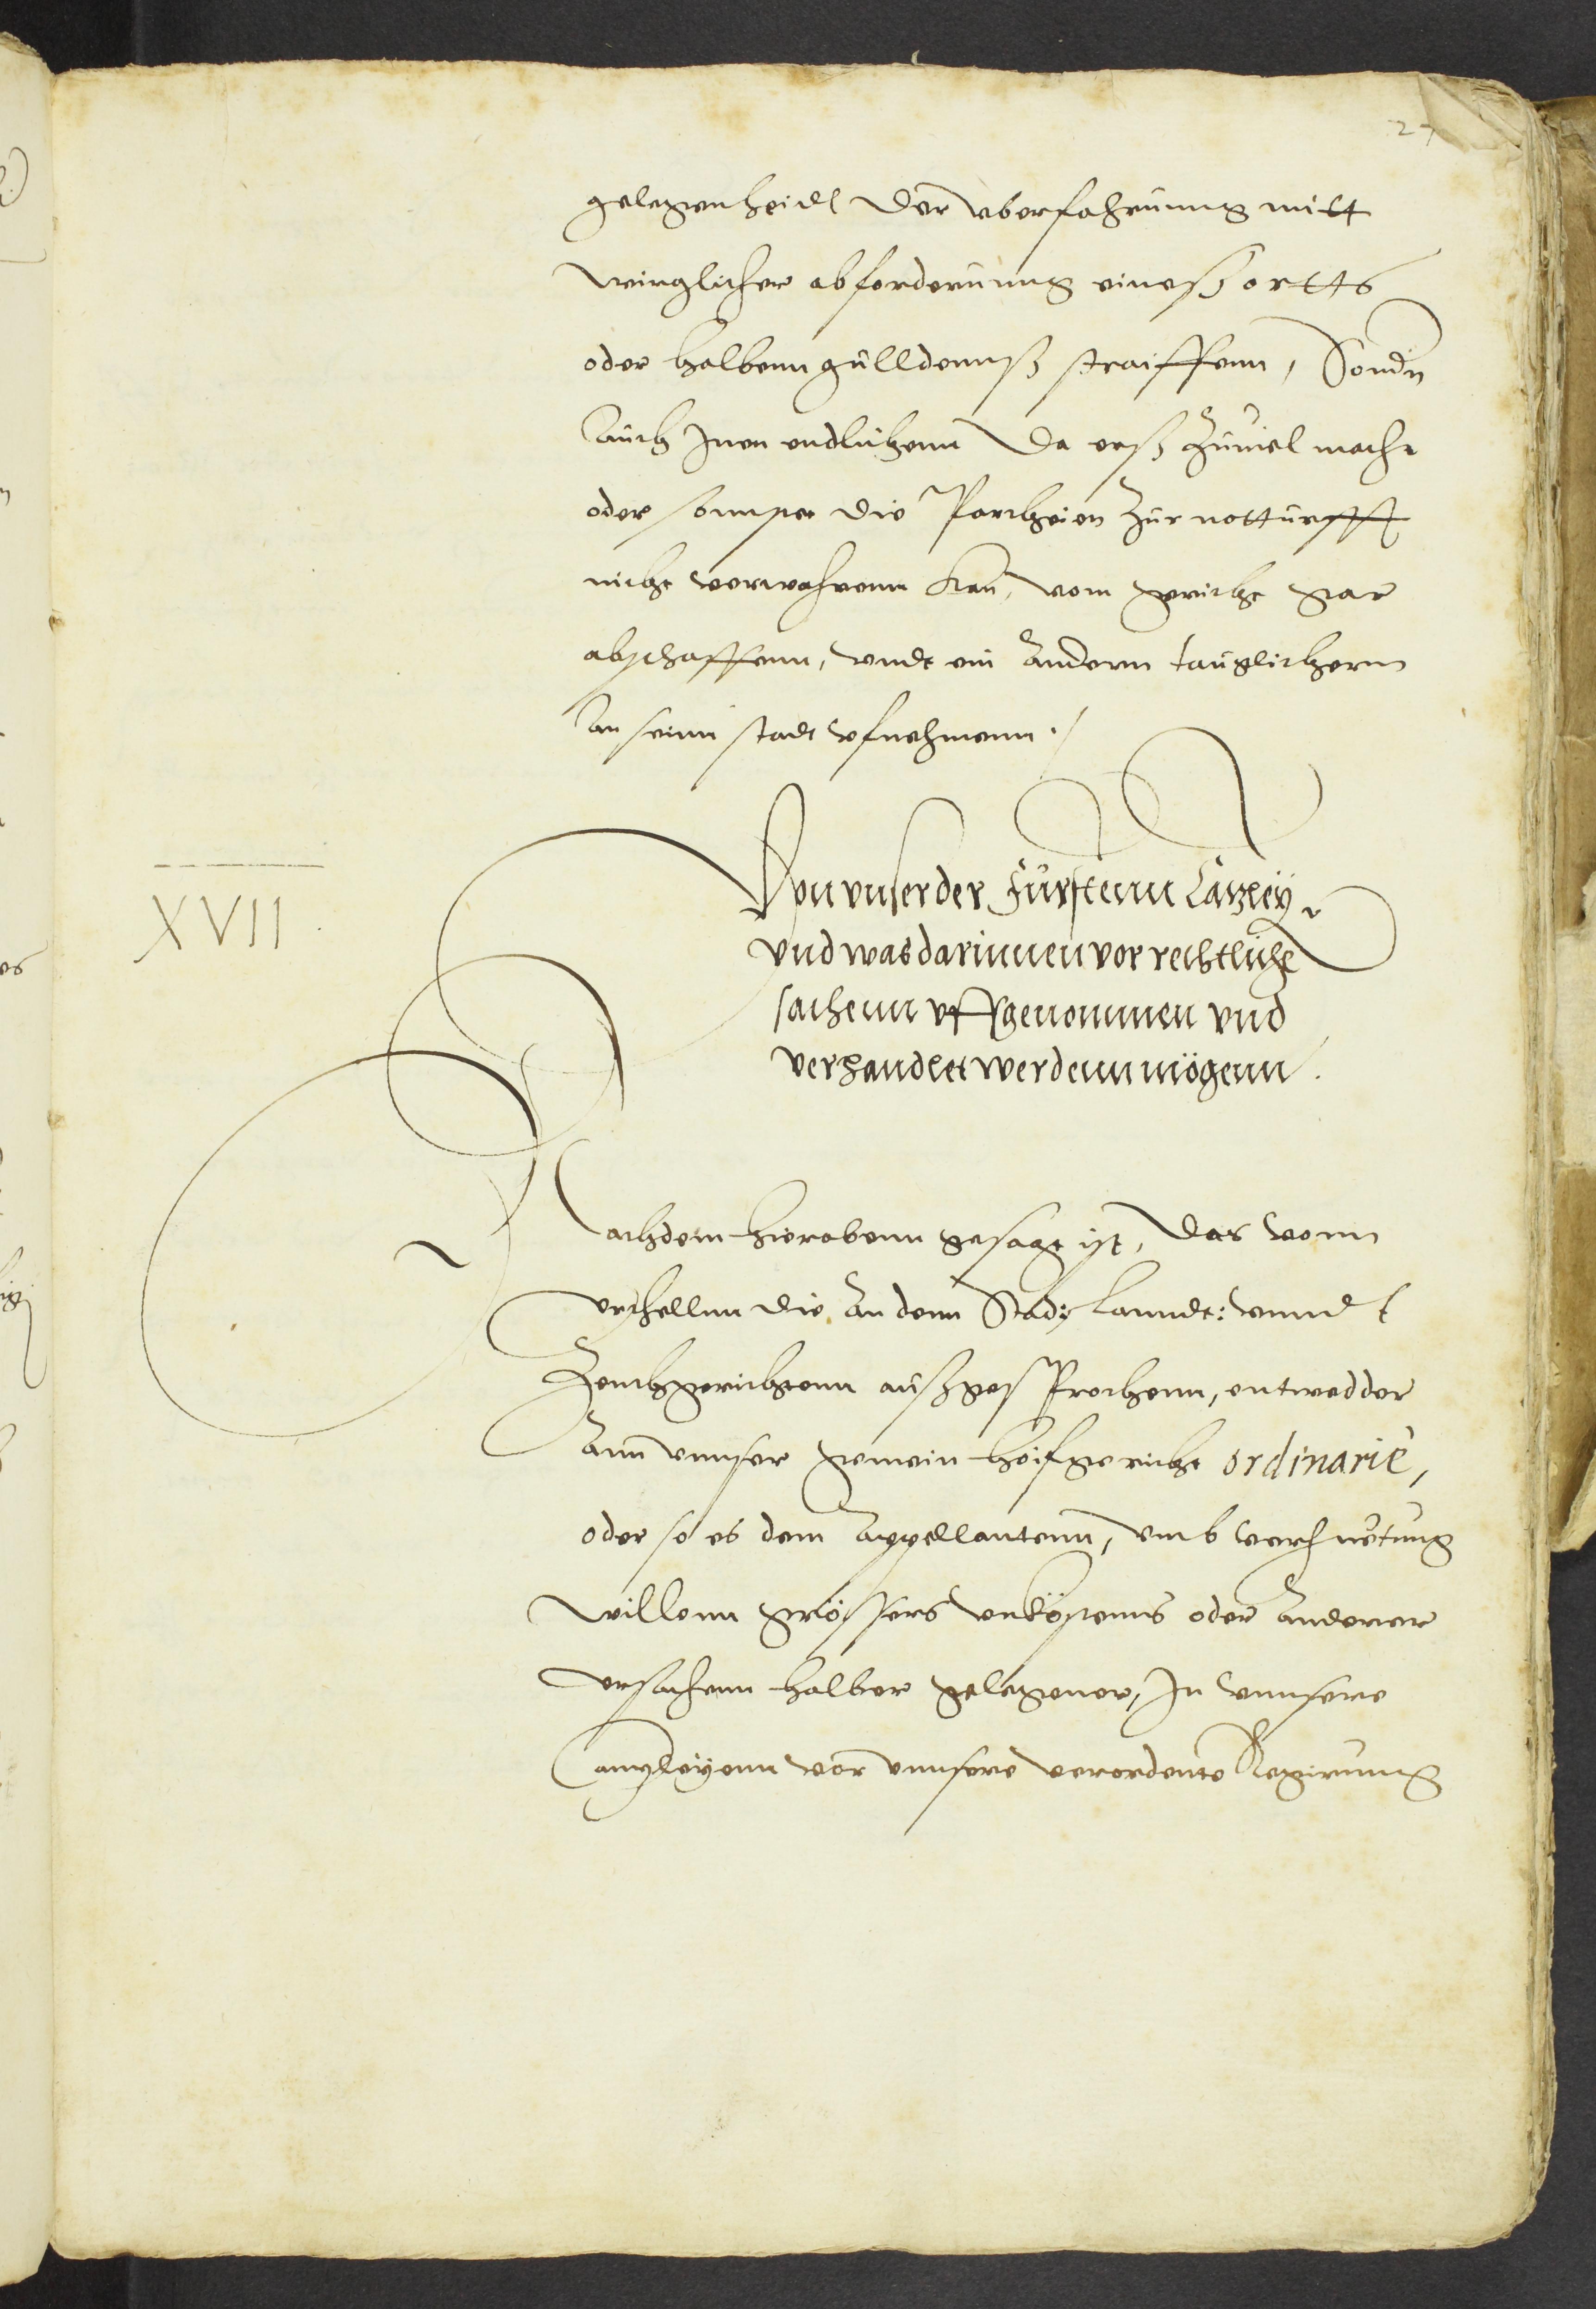 27
gelegenheidt der vberfahrunng mitt
wirglicher abforderunng eineß ortts
oder halbenn gülldennß straiffenn, Sondn
Auch Inen endlichenn da erß zuuiel macht
oder sonnsten die Partheien zur notturfft
nicht verwahrenn kan, vom gericht gar
abschaffenn, vndt ein Andern tauglichern
An seinn stadt vfnehmenn.
XVII
Von vnser der Fürstenn Cantzley
vnd was darinnen vor rechtliche
sachenn vffgenommen vnd
verhandlet werdenn mögenn.
Nachdem hierobenn gesagt ist, das vonn
vrtheilnn die An denn Stadt: Lanndt: vnndt
Zenthgerichtenn außgesprochenn, entwedder
Ann vnnser gemein hoifgericht ordinariè,
oder so es dem Appellantenn, vmb verhuetung
willenn grössers vnköstenns oder Anderer
vrsachenn halber gelegener, In vnnsere
Canzleyenn vor vnnsere verordente Regirunng